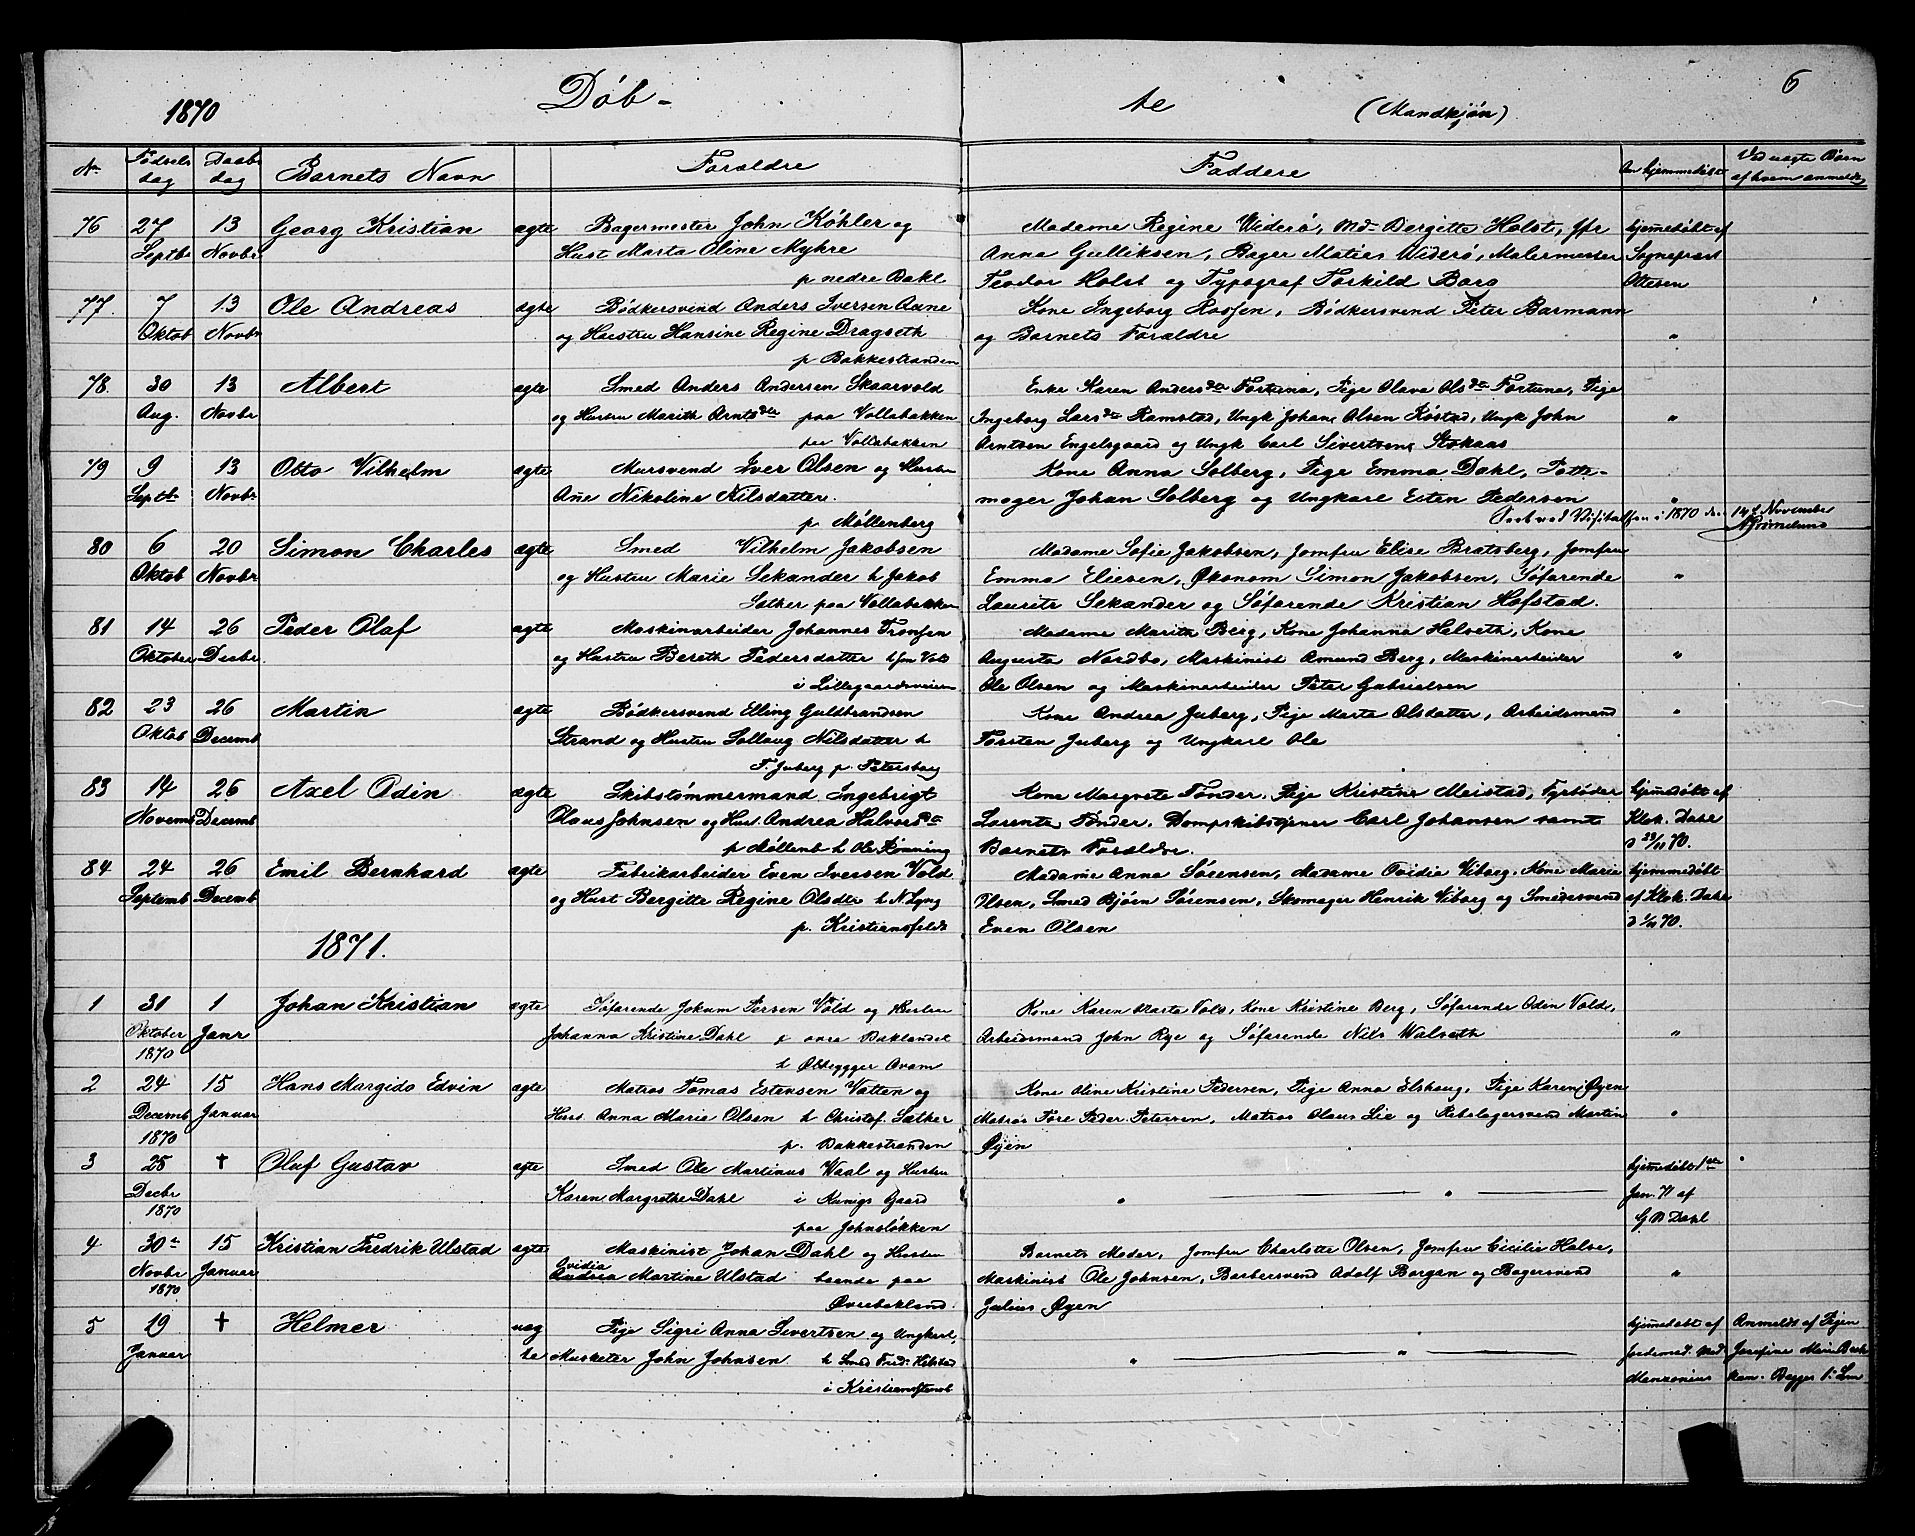 1870 Döb- te (Mandkjön) 6
No Fødsels dag Daabs dag Barnets Navn Forældre Faddere Om hjemmedöbt Ved uægte Børn af hvem anmeldt
76 27 13 Georg Kristian ægte Bagermester John Köhler og Madame Regine Widerö, Md. Bergitte Holst, Jfr hjemedöbt af
Septbr Novbr Hust Marta Oline Myhre Anna Gulliksen, Bager Matias Widerö, Malermester Sognepræst
p nedre Bakl Teodor Holst og Typograf Torkild Borg Ottesen
77. 7 13 Ole Andreas ægte Bödkersvend Anders Iversen Aune Kone Ingeborg Rossen, Bödkersvend Peter Barmann
Oktob Novbr og Hustru Hansine Regine Dragseth og Barnets Forældre "
p Bakkestranden
78. 30 13 Albert ægte Smed Anders Andersen Skaarvold Enke Karen Andersdtr Fortuna, Pige Olava Olsdtr Fortuna, Pige
Aug. Novbr og Hustru Marith Arntsdtr paa Vollabakken Ingeborg Larsdtr Ramstad, Ungk Johan Olsen Köstad, Ungk John "
paa Vollabakken Arntsen Engelsgaard og Ungk Carl Sivertsen Stokaas
79 9 13 Otto Vilhelm ægte Mursvend Iver Olsen og Hustru Kone Anna Solberg, Pige Emma Dahl, Potte-
Septbr Novbr Ane Nikoline Nilsdatter. mager Johan Solberg og Ungkarl Esten Pedersen "
p. Möllenberg Seet ved Visitatsen i 1870 den 14d November
80 6 20 Simon Charles ægte Smed Vilhelm Jakobsen Madame Sofie Jakobsen, Jomfru Elise Bratsberg, Jomfru
Oktob Novbr og Hustru Marie Sekander h Jakob Emma Eliesen, Økonom Simon Jakobsen, Söfarende "
Sather paa Vollabakken Laurits Sekander og Söfarende Kristian Hofstad.
81 14 26 Peder Olaf ægte Maskinarbeider Johannes Tronsen Madame Marith Berg, Kone Johanna Halseth, Kone
Oktober Decbr. og Hustru Bereth Pedersdatter Augusta Nordbo, Maskinist Amund Berg, Maskinarbeider "
i Lillegaardsveien Ole Olsen og Maskinarbeider Peter Gabrielsen
82 23 26 Martin ægte Bödkersvend Elling Guldbrandsen Kone Andrea Juberg, Pige Marta Olsdatter, Arbeidsmand "
Oktob Decemb Strand og Hustru Sollaug Nilsdatter h Torsten Juberg og Ungkarl Ole
T. Juberg p. Petersborg
83 14 26 Axel Odin ægte Skibstömmermand Ingebrigt Kone Margrete Tönder, Pige Kristine Meistad, Fyrböder hjemedöbt af
Novemb Decemb Olaus Johnsen og Hus. Andrea Halvorsdtr Lorents Tönder, Dampskibstjener Carl Johansen samt Klok. Dahl
p Möllenb h Ole Rönning Barnets Forældre. d 23/11 70.
84 24 26 Emil Bernhard ægte Fabrikarbeider Even Iversen Vold Madame Anna Sörensen, Madame Ovidia Viborg, Kone Marie hjemmedöbt
Septemb Decemb og Hust Bergitte Regine Olsdtr h N Lyng Olsen, Smed Björn Sörensen, Skomager Henrik Viborg og Smedesvend af Klok. Dahl
p. Kristiansfeldt Even Olsen
1871.
1 31 1 Johan Kristian ægte Söfarende Jokum Persen Vold og Hustru Kone Karen Marta Vold, Kone Kristine Berg, Söfarende Odin Vold,
Oktober Janr Johanna Kristine Dahl p övre Baklandet Arbeidsmand John Rye og Söfarende Nils Walseth "
1870
2 24 15 Hans Margido Edvin ægte Matros Tomas Estensen Vatten og Kone Oline Kristine Pedersen, Pige Anna Elshaug, Pige Karen Øyen
Decemb Januar Hust. Anna Marie Olsen h Christof. Sather Matros Tore Peder Petersen, Matros Olaus Lie og Rebslagersvend Martin "
1870 p. Bakkestranden Øyen
3 25 † Oluf Gustav ægte Smed Ole Martinus Waal og Hustru hjemedöbt 1ste
Decbr Karen Margrethe Dahl i Kunigs Gaard " " Jan. 71 af
1870 paa Johnslökken G B Dahl
4 30te 15 Kristian Fredrik Ulstad ægte Maskinist Johan Dahl og Hustru Barnets Moder, Jomfru Charlotte Olsen, Jomfru Cicilie Halse,
Ovidia
Novbr Januar Andrea Martine Ulstad boende paa Maskinist Ole Johnsen, Barbersvend Adolf Borgan og Bagersvend "
1870 Øvrebakland. Julius Øyen
5 19 † Helmer uæg Pige Sigri Anna Sivertsen og Ungkarl, hjemedöbt af Anmeldt af Pigen
Januar te Musketer John Johnsen h Smed Fred. Helstad " " Jordemod. Mad Josefine Marie Beck
i Kristiansfeldt